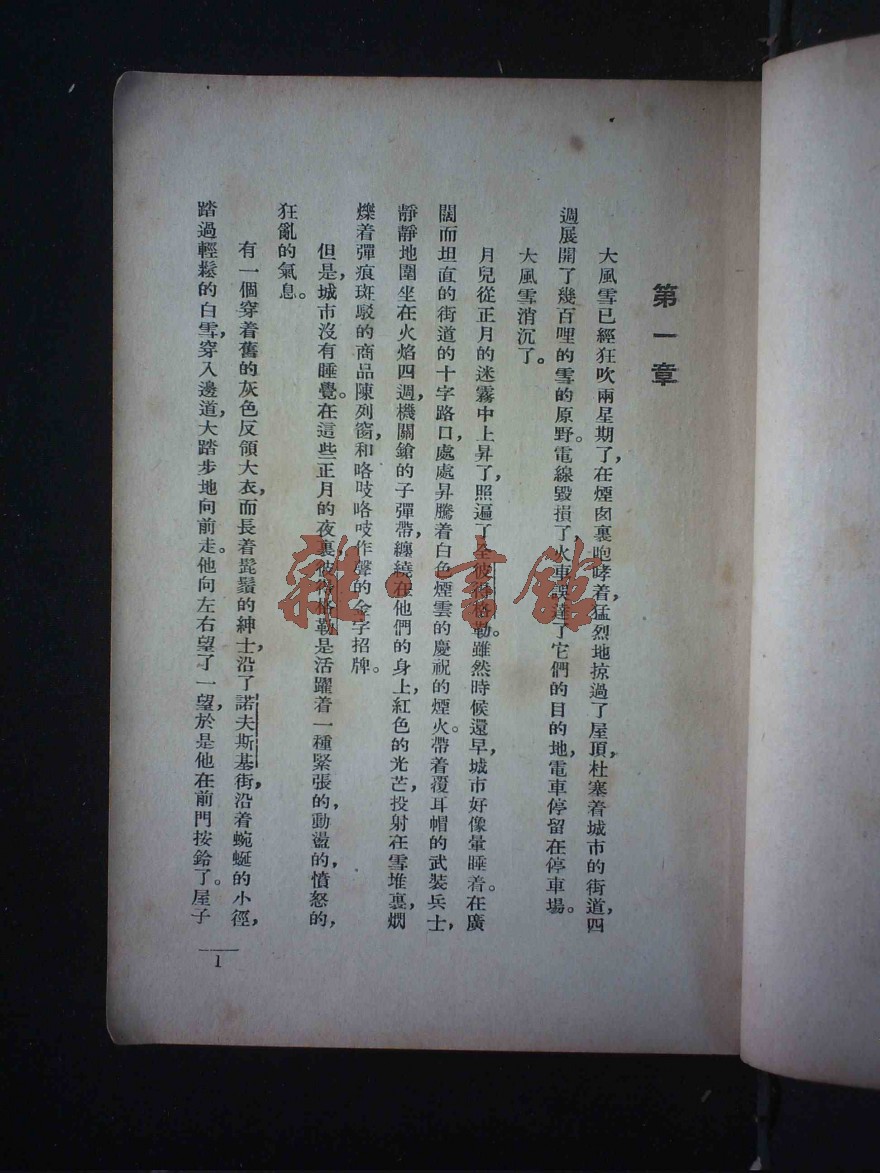 第一章
大風雪已經狂吹兩星期了，在煙囱裏咆哮着，猛烈地掠過了屋頂，杜塞着城市的街道，四
週展開了幾百哩的雪的原野。電線毀損了，火車誤達了它們的目的地，電車停留在停車場。
大風雪消沉了。
月兒從正月的迷霧中上昇了，照遍了全彼得格勒。雖然時候還早，城市好像暈睡着。在廣
闊而坦直的街道的十字路口，處處昇騰着白色煙雲的慶祝的煙火。帶着覆耳帽的武裝兵士，
靜靜地圍坐在火焰四週，機關鎗的子彈帶，纏繞在他們的身上，紅色的光芒，投射在雪堆裏，燗
爍着彈痕斑駁的商品陳列窗，和咯吱咯吱作聲的金字招牌。
但是，城市沒有睡覺。在這些正月的夜裏，彼得格勒是活躍着一種緊張的，動盪的，憤怒的，
狂亂的氣息。
有一個穿着舊的灰色反領大衣，而長着髭鬚的紳士，沿了諾夫斯基街，沿着蜿蜒的小徑，
踏過輕鬆的白雪，穿入邊道，大踏步地向前走。他向左右望了一望，於是他在前門按鈴了。屋子
1
雜·書館